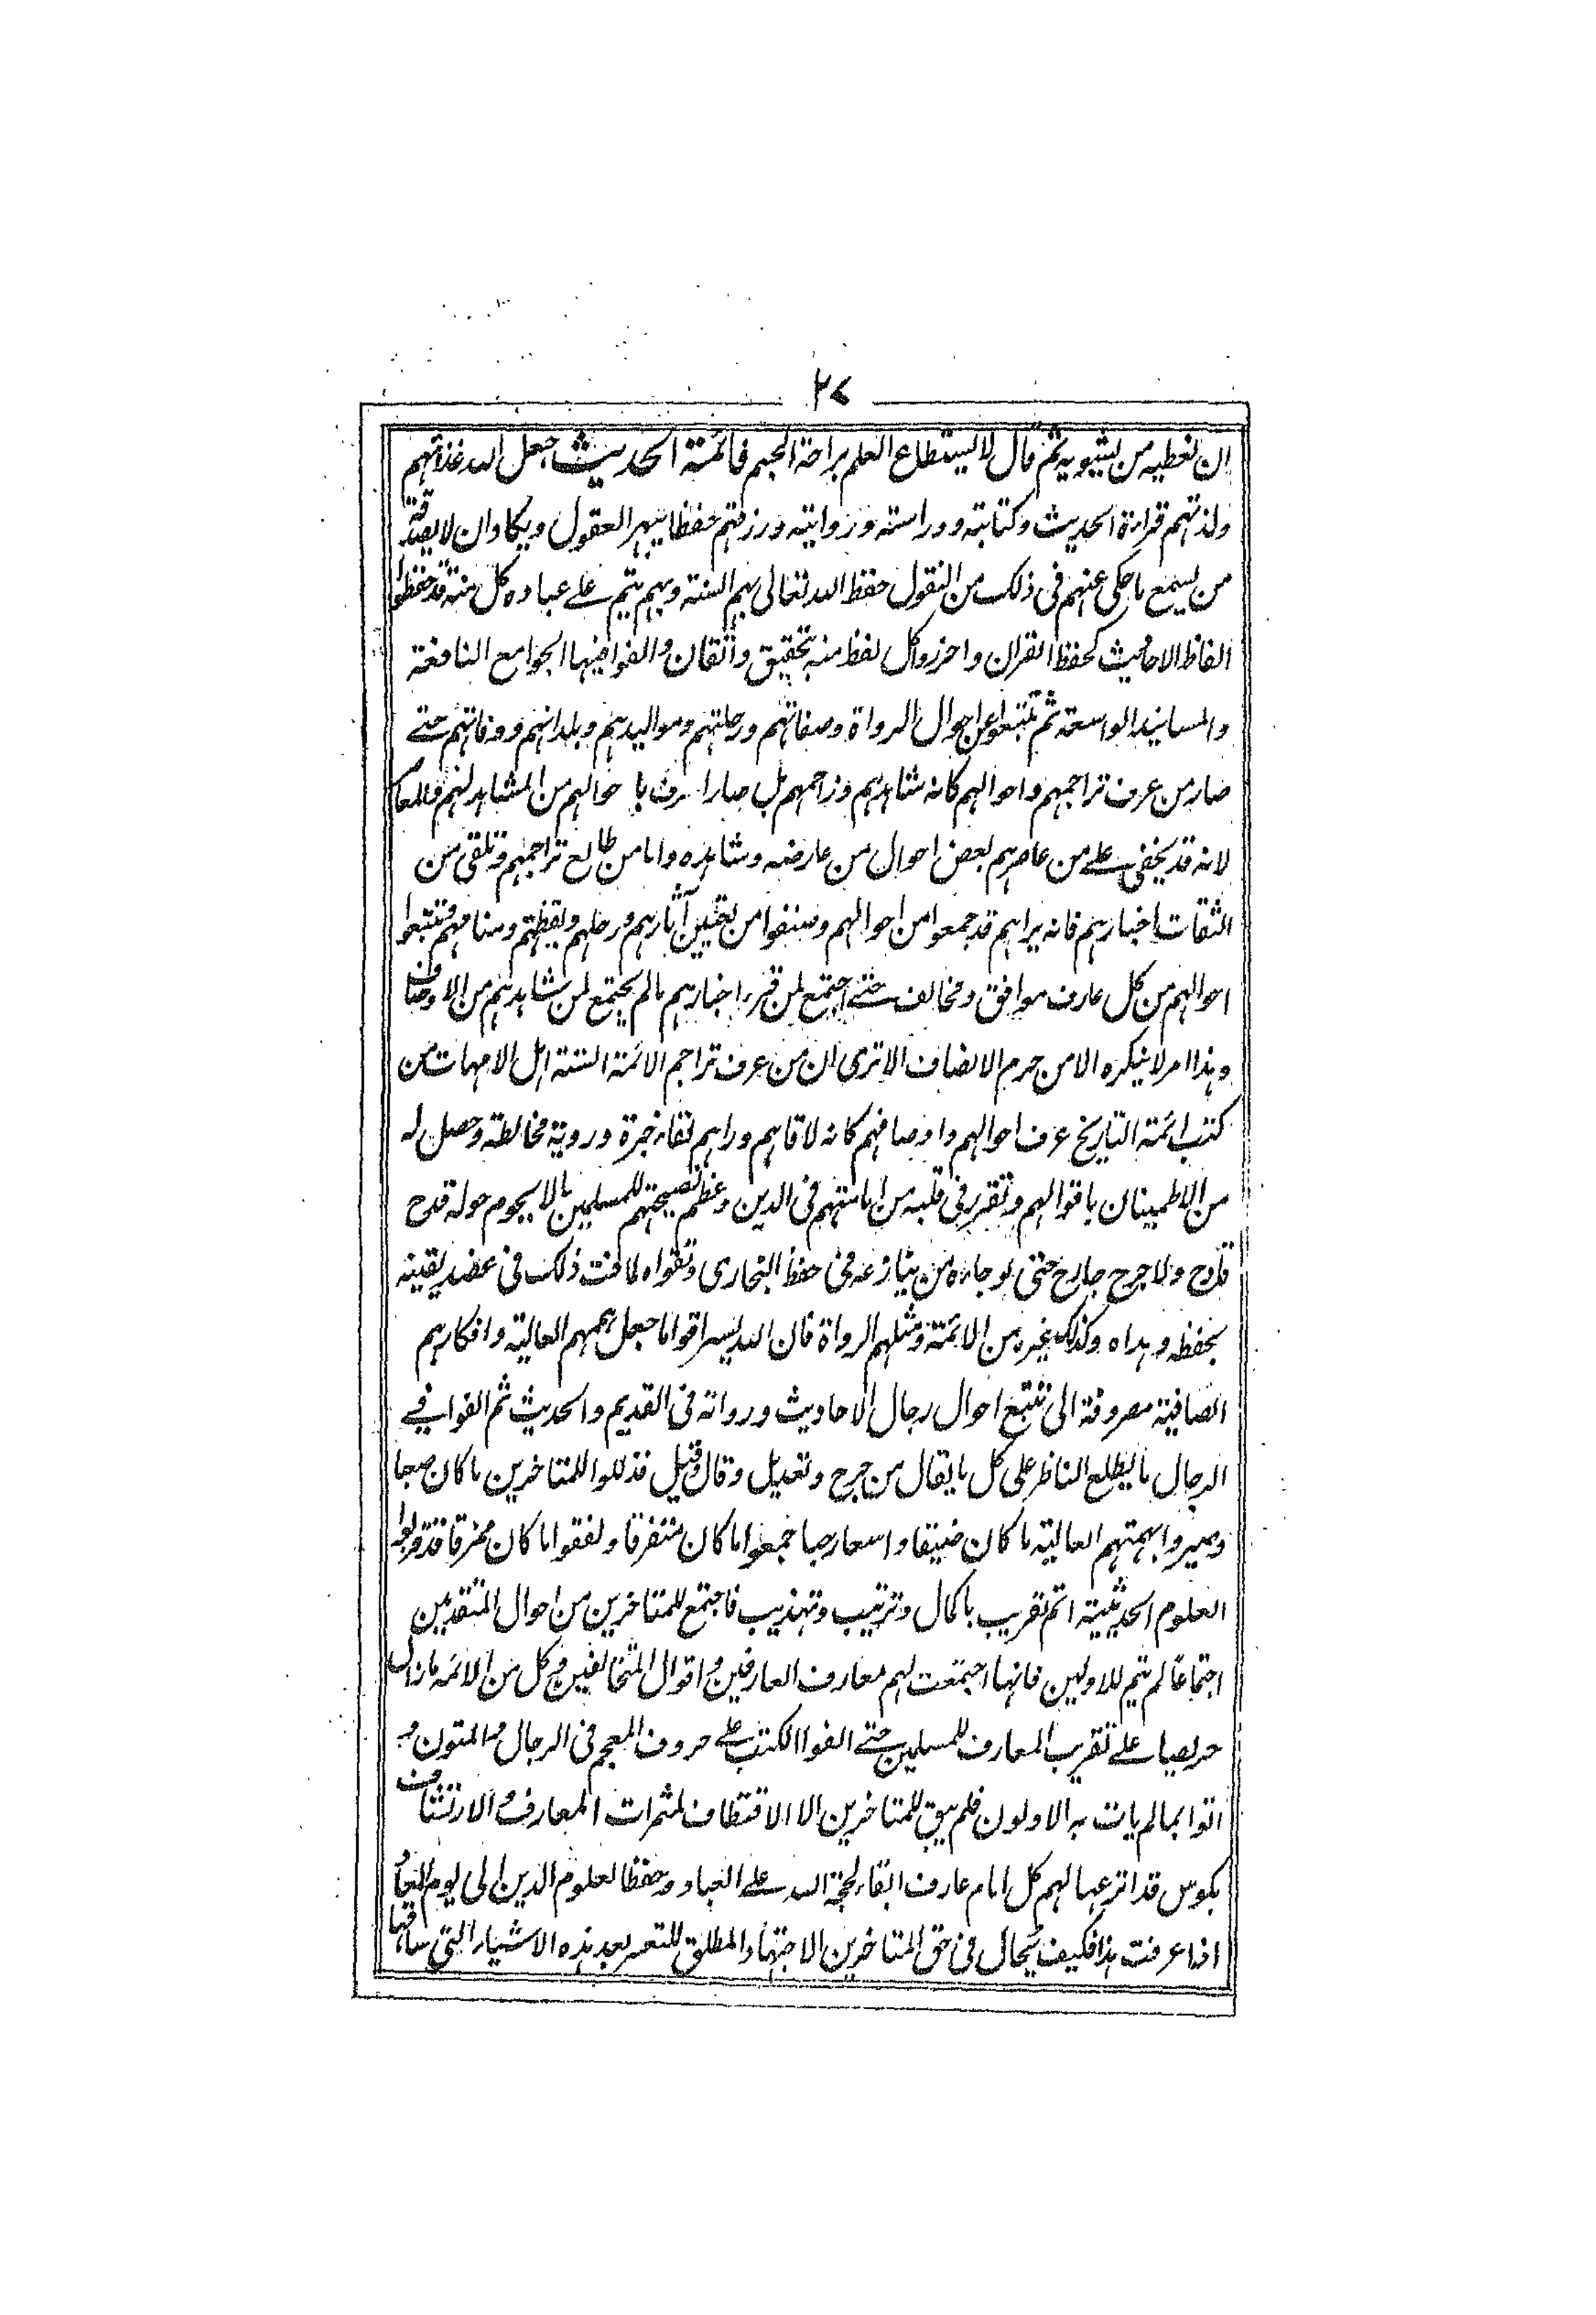 ٢٧
ان نغطيه من يشبويه ثم قال لا يستطاع العلم براحة الجسم فائمة الحديث جعل الله غذائهم
ولذتهم قراءة الحديث وكتابته ودراسته وروايته ورزقهم حفظا يبهر العقول ويكاد ان لا يصدقه
من يسمع ما حكى عنهم فى ذلك من النقول حفظ الله تعالى بهم السنة وبهم يتم على عباده كل منته قد حفظوا
الفاظ الاحاديث كحفظ القران واحرزوا كل لفظ منه بتحقيق واتقان والفوا فيها الجوامع النافعة
والمسانيد الواسعة ثم تتبعوا عن احوال الرواة وصفاتهم ورحلتهم ومواليدهم وبلدانهم ووفاتهم حتے
صار من عرف تراجمهم واحوالهم كانه شاهدهم وزاحمهم بل صار اعرف باحوالهم من المشاهد لهم والمعاصر
لانه قد يخفى على من عاصرهم بعض احوال من عارضه وشاهده واما من طالع تراجمهم وتلقى من
الثقات اخبارهم فانه يراهم قد جمعوا من احوالهم وصنفوا من آثارهم ورحلهم ويقظتهم ومنامهم وتتبعوا
احوالهم من كل عارف موافق ومخالف حتے اجتمع لمن قرء اخبارهم مالم يجتمع لمن شاهدهم من الاوصاف
وهذا امر لا ينكره الا من حرم الانصاف الا ترى ان من عرف تراجم الائمة الستة اهل الامهات من
كتب ائمة التاريخ عرف احوالهم واوصافهم كانه لاقاهم وراهم لقاء خبرة وروية مخالطة وحصل له
من الاطمينان باقوالهم وتقرر فى قلبه من امانتهم فى الدين وعظم نصيحتهم للمسلمين ما لا يحوم حوله قدح
قادح ولا جرح جارح حتى لو جاءه من ينازعه فى حفظ البخارى وتقواه لما فت ذلك فى عضد يقينه
بحفظه وهداه وكذلك غيره من الائمة ومثلهم الرواة فان الله يسر اقواما جعل هممهم العالية وافكارهم
الصافية مصروفة الى تتبع احوال رجال الاحاديث ورواته فى القديم والحديث ثم الفوا فے
الرجال ما يطلع الناظر على كل ما يقال من جرح وتعديل وقال وقيل فذللوا للمتاخرين ما كان صعبا
وصيروا بهمتهم العالية ما كان ضيقا واسعا رحبا جمعوا ما كان متفرقا ولفقوا ما كان مخرقا فقربوا
العلوم الحديثية اتم تقريب باكمال وترتيب وتهذيب فاجتمع للمتاخرين من احوال المتقدمين
اجتماعا لم يتم للاولين فانها اجتمعت لهم معارف العارفين واقوال المتخالفين وكل من الائمة مازال
حريصا على تقريب المعارف للمسلمين حتے الفوا الكتب على حروف المعجم فى الرجال والمتون و
اتوا بما لم يات به الاولون فلم يبق للمتاخرين الا الاقتطاف لثمرات المعارف والارتشاف
بكوس قد اترعها لهم كل امام عارف ابقاء لحجة الله على العباد وحفظا لعلوم الدين الى يوم المعاد
اذا عرفت هذا فكيف يحال فى حق المتاخرين الاجتهاد المطلق للتعسر بعد هذه الاشياء التى ساقها